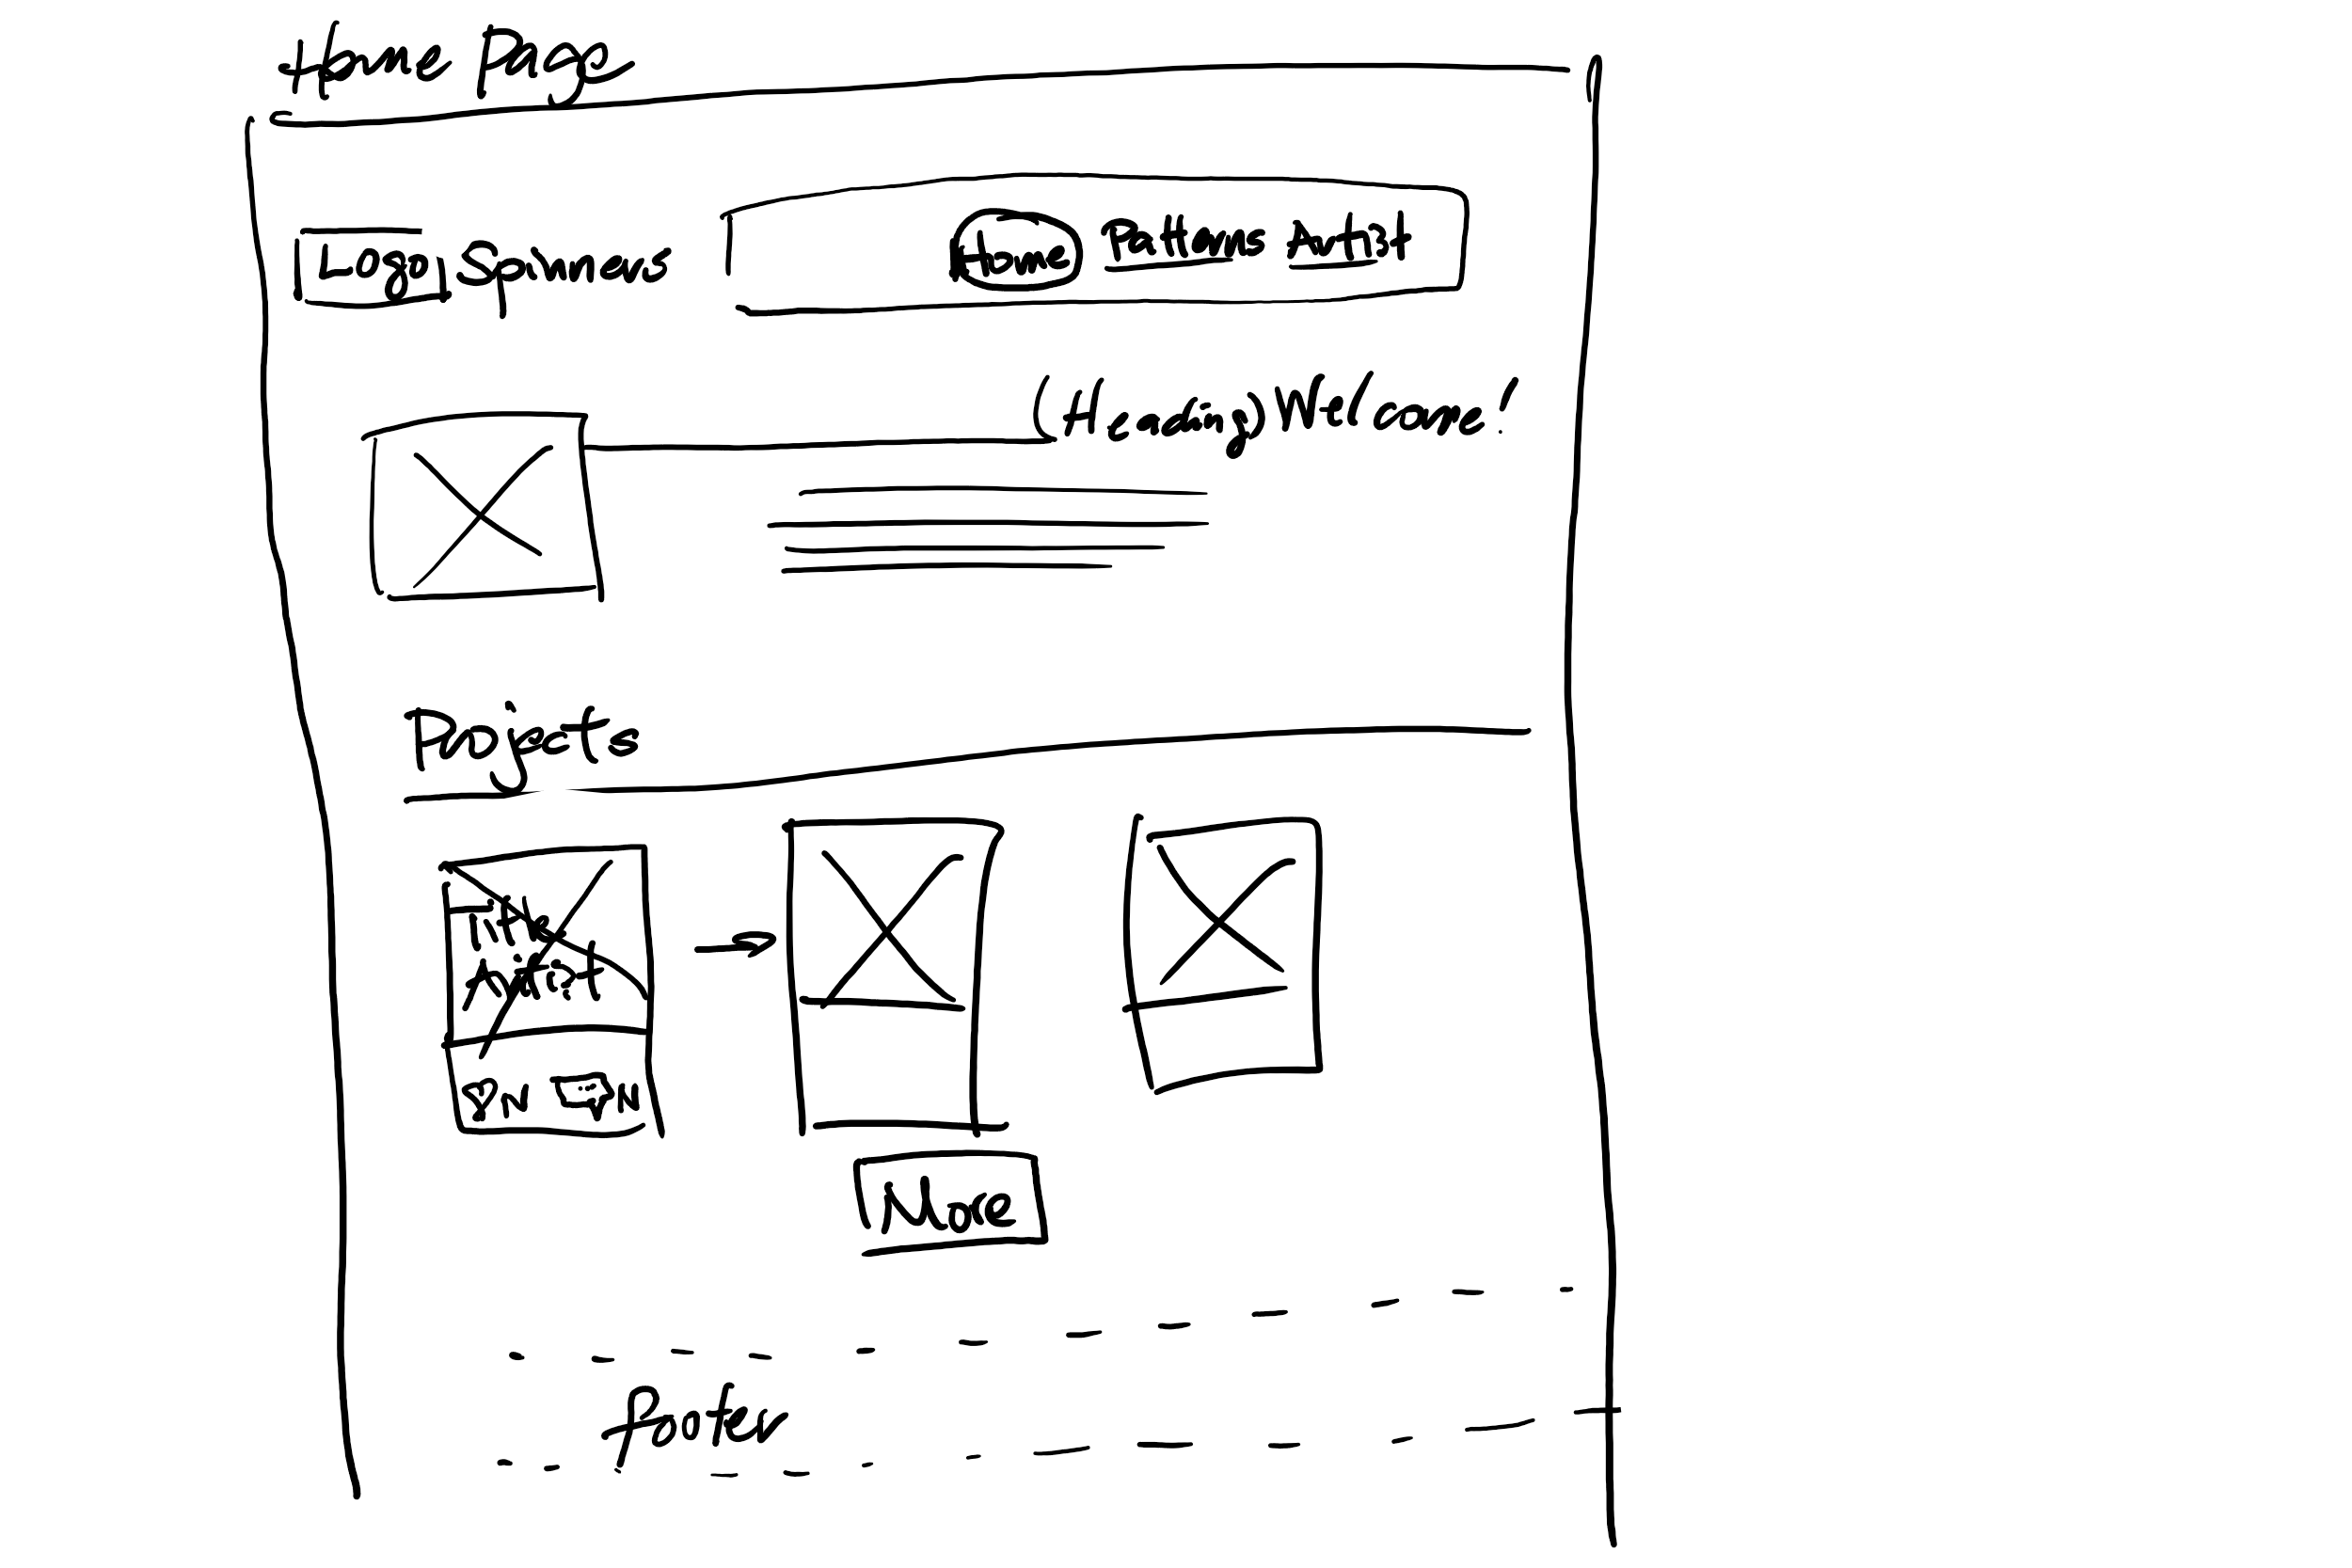 Home Page
Logo Spinnens
Home Patterns Artist
(Heading) Welcome!
Projects
Title
Artist
More
Footer